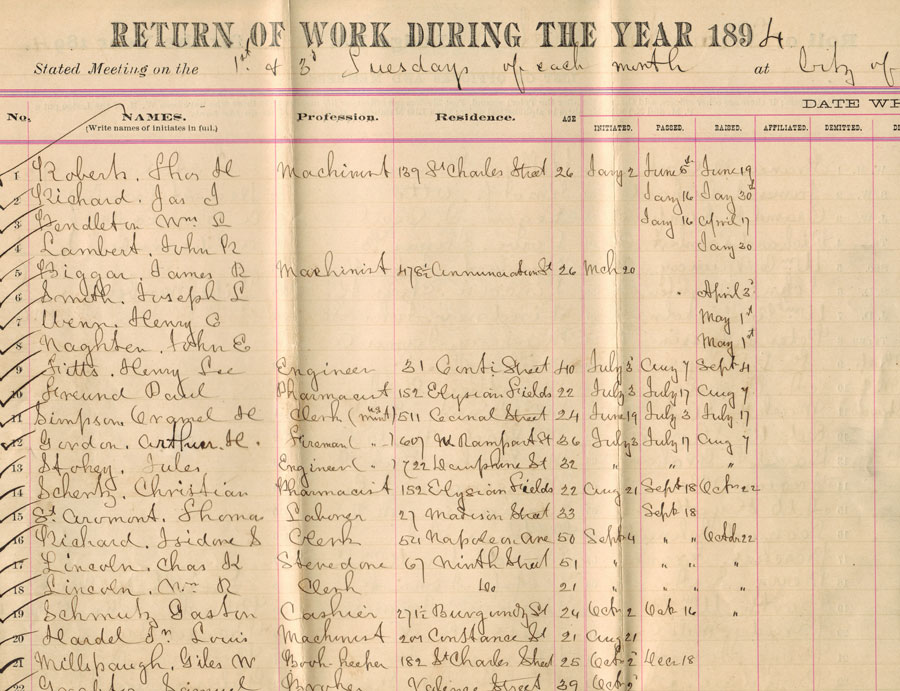 RETURN OF WORK DURING THE YEAR 1894
Stated Meeting on the 1st & 3d Tuesdays of each month at City of
DATE WH
No. NAMES. Profession. Residence. AGE INITIATED. PASSED. RAISED. AFFILIATED. DEMITTED.
(Write names of initiates in full.)
1 Roberts. Thos H Machinist 139 St Charles Street 26 Jany 2 June 5th June 19
2 Richard. Jas I Jany 16 Jay 30th
3 Pendleton Wm L Jany 16 April 17
4 Lambert. John R Jany 30
5 Biggar. James R Machinist 478½ Annunciation St 26 Mch 20
6 Smith. Joseph L April 3d
7 Wenn. Henry C May 1st
8 Naghten. John E May 1st
9 Fitts. Henry Lee Engineer 31 Conti Street 40 July 3 Aug 7 Sept 4
10 Freund Paul Pharmacist 152 Elysian Fields 22 July 3 July 17 Aug 7
11 Simpson. Oramel H Clerk (U.S. mint) 511 Casinal Street 24 June 19 July 3 July 17
12 Gordon. Arthur. H. Fireman ( " ) 607 N Rampart St 36 July 3 July 17 Aug 7
13 Stokey. Jules Engineer ( " ) 722 Dauphine St 32 " " "
14 Schertz. Christian Pharmacist 152 Elysian Fields 22 Aug 21 Sept 18 Octr 22
15 St Aromont. Thomas Laborer 27 Madison Street 33 Sept 18
16 Richard. Isidore S Clerk 521 Napoleon Ave 50 Sept 4 " " Octbr 22
17 Lincoln. Chas K Stevedore 67 Ninth Street 51 " " "
18 Lincoln. Wm R Clerk Do 21 " " "
19 Schmutz Gaston Cashier 271½ Burgundy St 24 Octr 2 Oct 16 "
20 Hardel Jr. Louis Machinist 201 Constance St 21 Aug 21
21 Millspaugh. Giles W Book-keeper 182 St Charles Street 25 Octr 2 Decr 18
22 Samuel Broker Valence Street 39 Octr 2